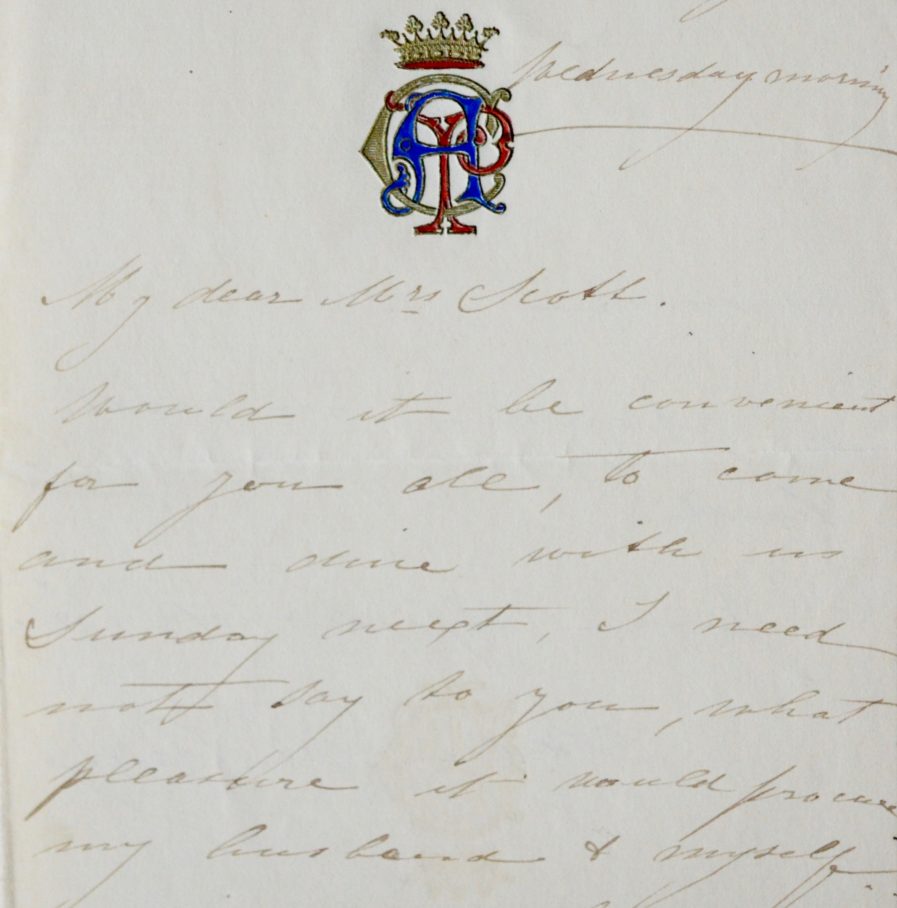 Wednesday morning
My dear Mrs Scott.
Would it be convenient
for you all, to come
and dine with us
Sunday next, I need
not say to you, what
pleasure it would procure
my husband & myself